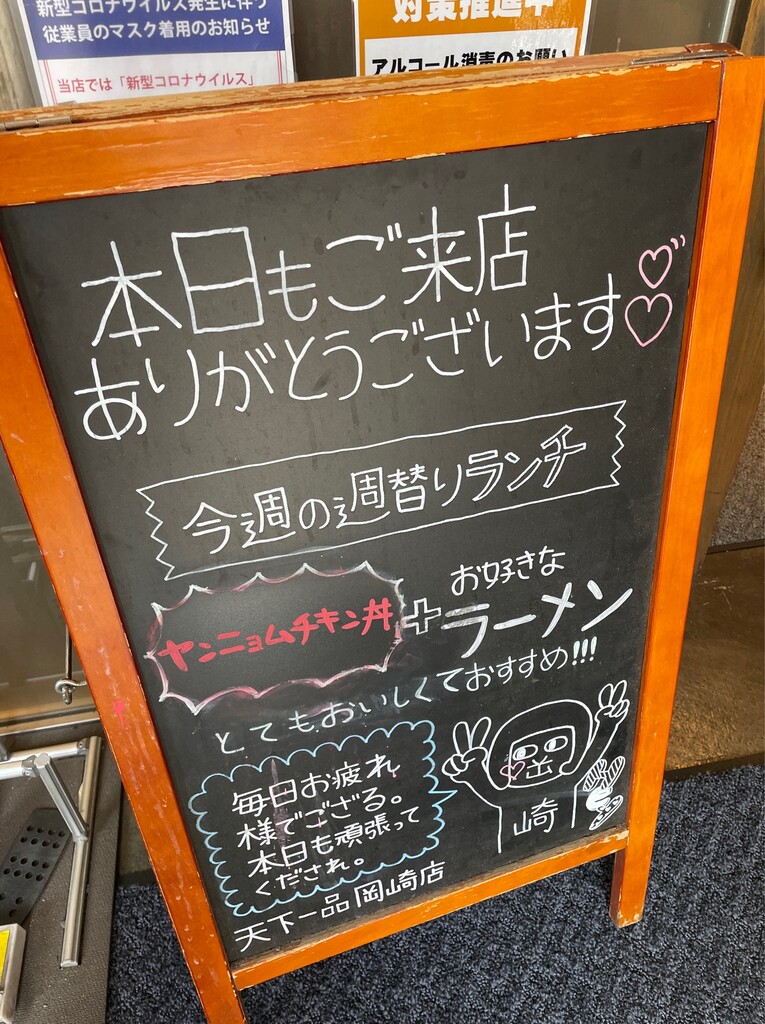 新型コロナウイルス発生に伴う
従業員のマスク着用のお知らせ
当店では「新型コロナウイルス」
対策推進中
アルコール消毒のお願い
本日もご来店
ありがとうございます
今週の週替りランチ
ヤンニョムチキン丼
+
お好きな
ラーメン
とてもおいしくておすすめ!!!
毎日お疲れ
様でござる。
本日も頑張って
くだされ。
崎
天下一品 岡崎店